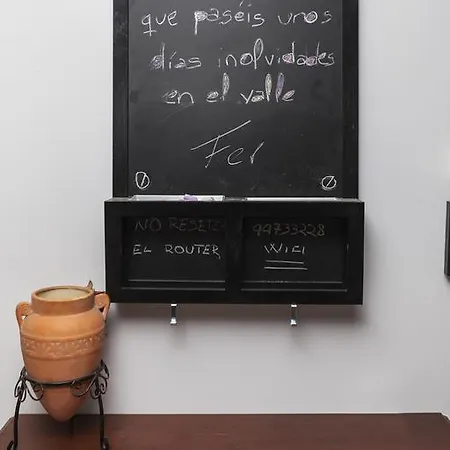 que paséis unos
días inolvidades
en el valle
Fer
NO RESETEE
EL ROUTER
99733228
WIFI